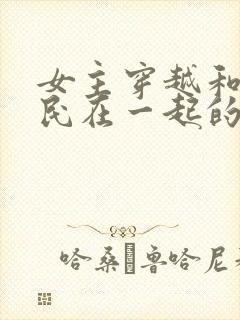 女主穿越和
民在一起的
哈桑·鲁哈尼